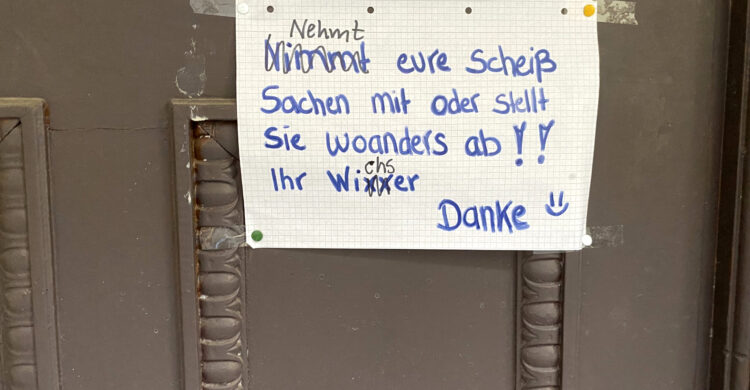 Nehmt
Nimmt eure Scheiß
Sachen mit oder stellt
Sie woanders ab !!
chs
Ihr Wixxer
Danke